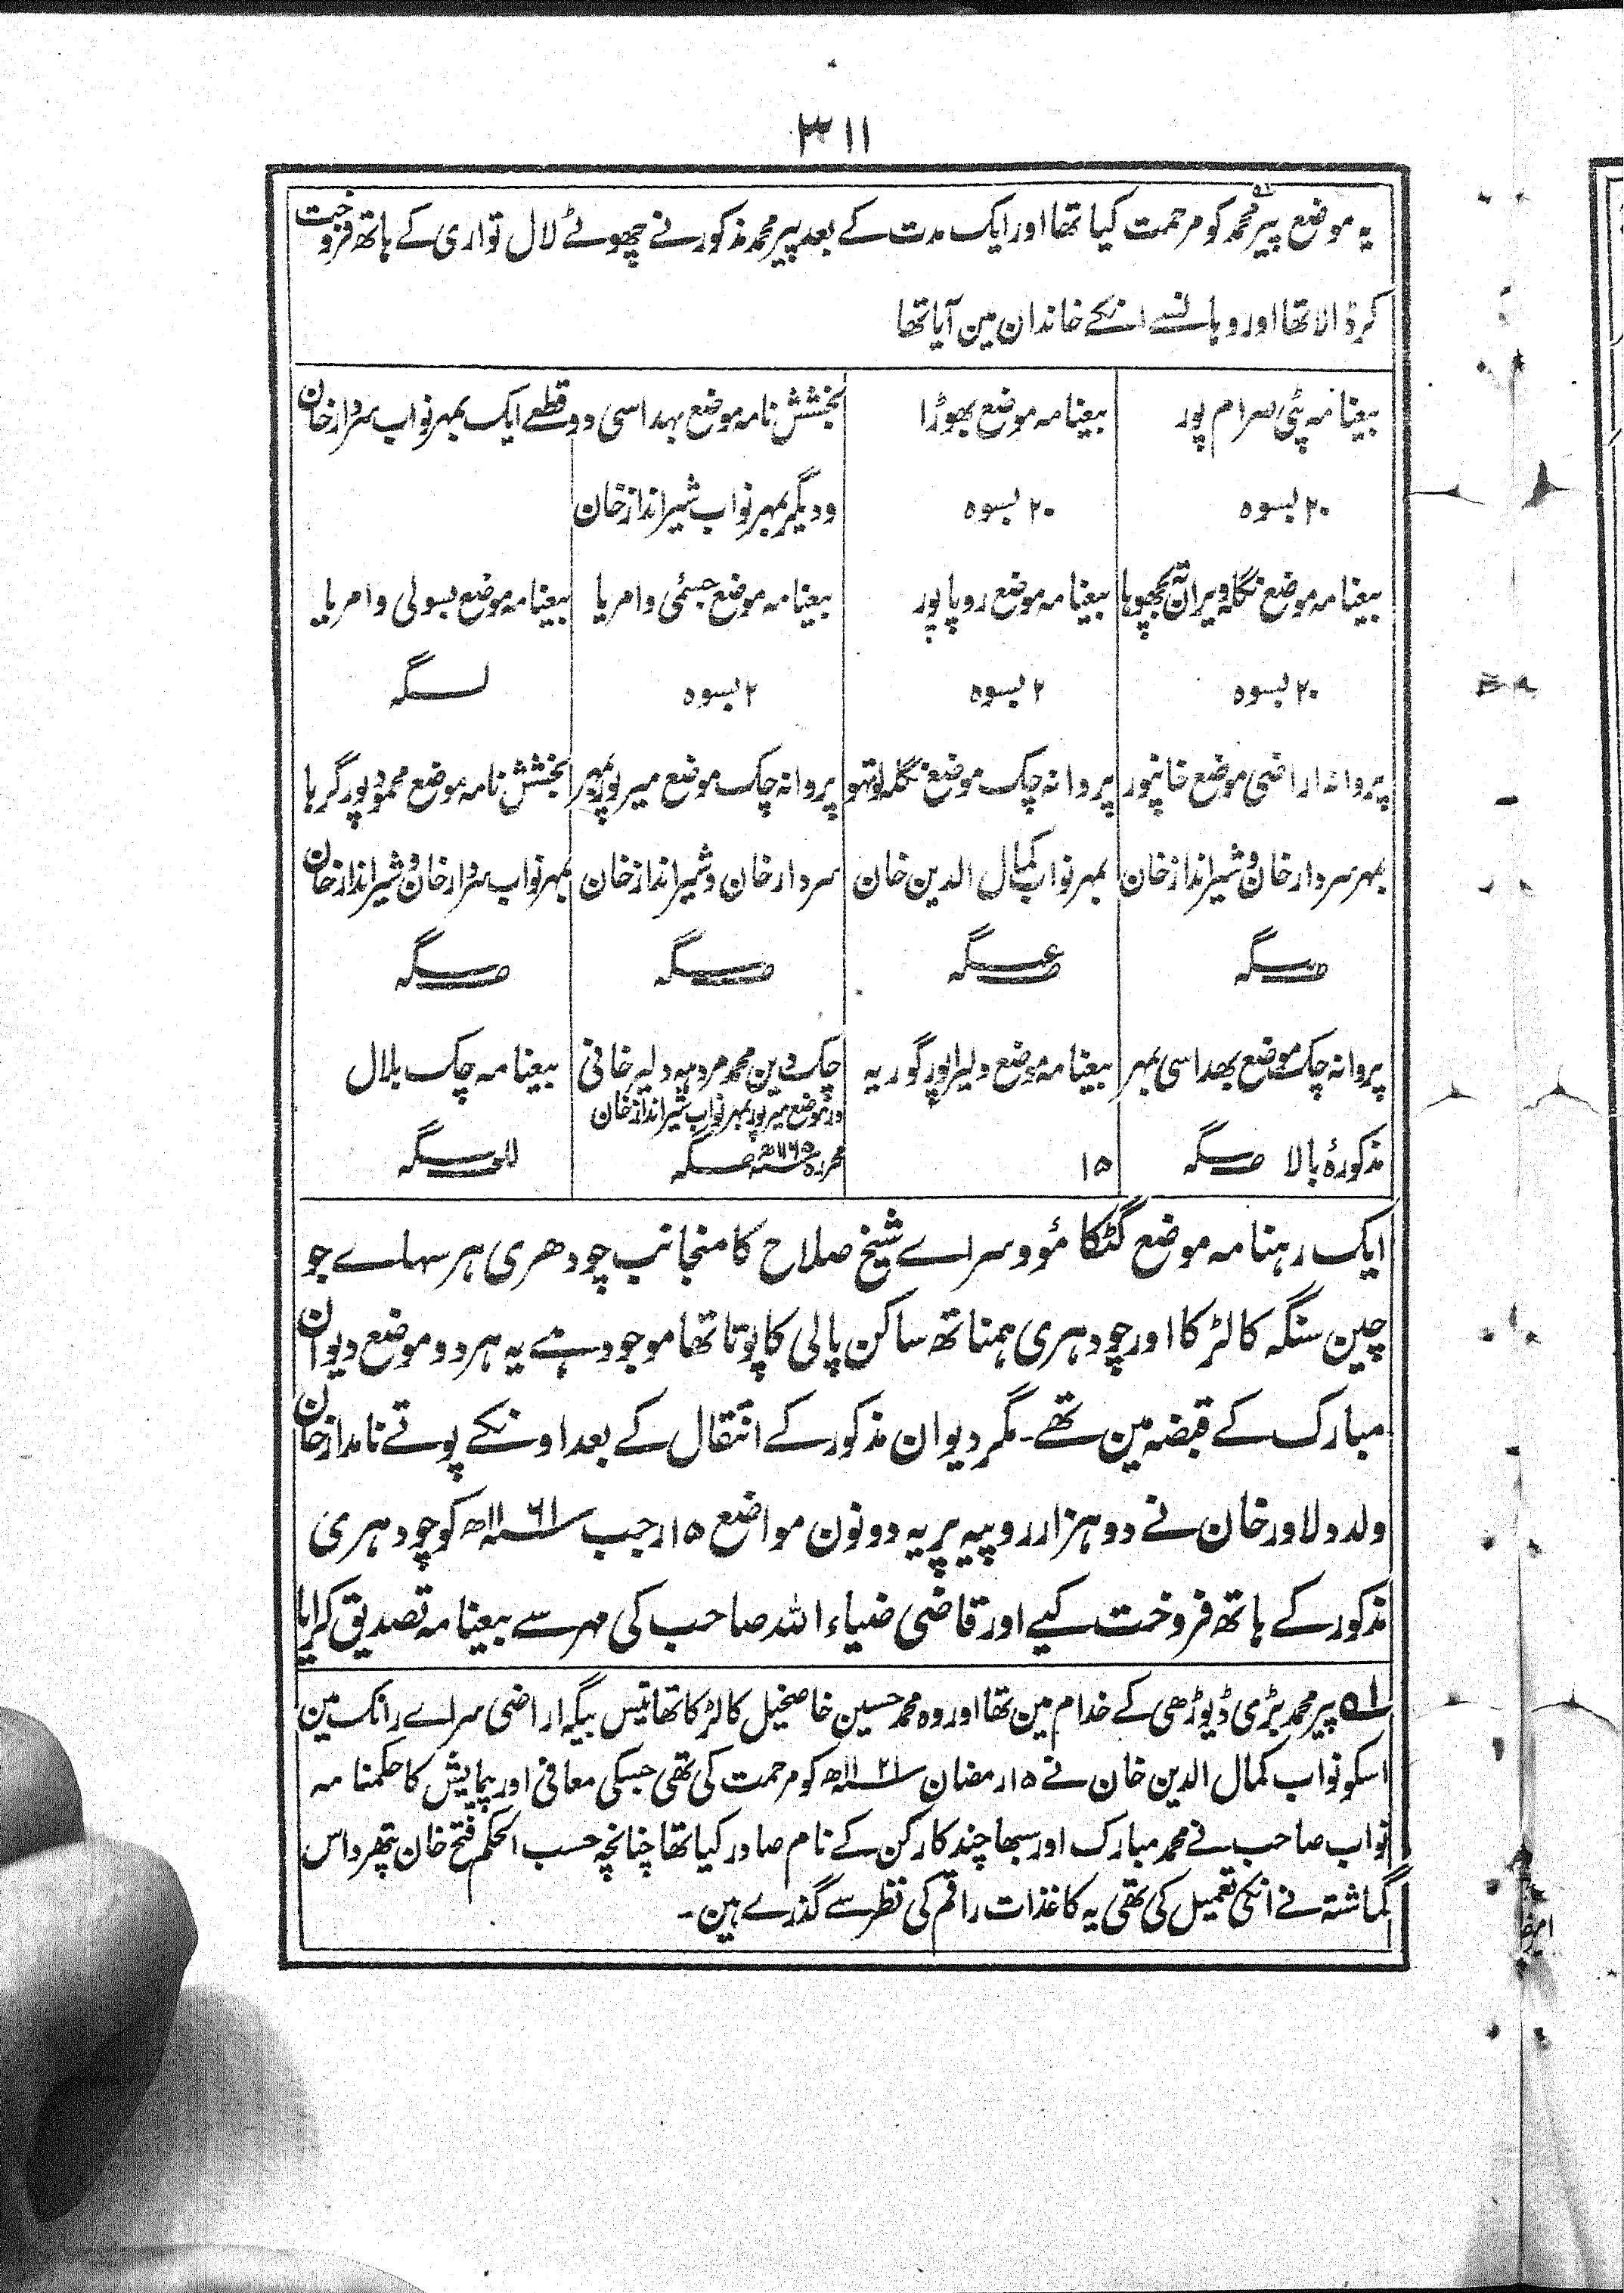 ۳۱۱
یہ موضع پیر محمد کو مرحمت کیا تھا اور ایک مدت کے بعد پیر محمد مذکور نے چھوٹے لال تواری کے ہاتھ فروخت
کر ڈالا تھا اور وہانسے انکے خاندان مین آیا تھا
بیعنامہ پٹی سرام پور بیعنامہ موضع بھوڑا بخشش نامہ موضع بہداسی دو قطعے ایک بمہر نواب سردار خان
۲۰ بسوہ ۲۰ بسوہ و دیگر بمہر نواب شیر انداز خان
بیعنامہ موضع نگلہ ویران بیعنامہ موضع روپاپور بیعنامہ موضع جبئی و امریا بیعنامہ موضع بسولی و امریا
۲۰ بسوہ ۲ بسوہ ۲ بسوہ
پروانہ اراضی موضع خانپور پروانہ چک موضع نگلہ پروانہ چک موضع میرپور بمہر بخشش نامہ موضع محمود پور گرہا
بمہر سردار خان و شیر انداز خان بمہر نواب کمال الدین خان سردار خان و شیر انداز خان بمہر نواب سردار خان و شیر انداز خان
پروانہ چک موضع بھداسی بمہر بیعنامہ موضع دلیراپور گوریہ چک دین محمد مردہہ دلیر خانی بیعنامہ چک بلال
در موضع میرپور بمہر نواب شیر انداز خان
مذکورۂ بالا ۱۵ محررہ ۱۱۶۵ھ
ایک رہنامہ موضع گٹکا مؤ و سراے شیخ صلاح کا منجانب چودھری ہر سہاے جو
چین سنگہ کا لڑکا اور چودہری ہمناتھ ساکن پالی کا پوتا تھا موجود ہے یہ ہر دو موضع دیوان
مبارک کے قبضہ مین تھے۔ مگر دیوان مذکور کے انتقال کے بعد اونکے پوتے نامدار خان
ولد دلاور خان نے دو ہزار روپیہ پر یہ دونون مواضع ۱۵ رجب ۱۱۶۱ھ کو چودہری
مذکور کے ہاتھ فروخت کیے اور قاضی ضیاء اللہ صاحب کی مہر سے بیعنامہ تصدیق کرایا
۵۱ پیر محمد بڑی ڈیوڑھی کے خدام مین تھا اور وہ محمد حسین خاصخیل کا لڑکا تھا تیس بیگہ اراضی سراے رانک مین
اسکو نواب کمال الدین خان نے ۱۵ رمضان ۱۱۲۱ھ کو مرحمت کی تھی جسکی معافی اور پیمایش کا حکمنامہ
نواب صاحب نے محمد مبارک اور سبھا چند کارکن کے نام صادر کیا تھا چنانچہ حسب الحکم فتح خان پتھر داس
گماشتہ نے انکی تعمیل کی تھی یہ کاغذات راقم کی نظر سے گذرے ہین۔